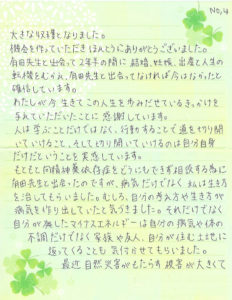 No,4
大きな収穫となりました。
機会を作っていただきほんとうにありがとうございました。
有田先生と出会って2年半の間に結婚、妊娠、出産と人生の
転機をむかえ、有田先生と出会ってなければ今はなかったと
確信しています。
わたしが今生きてこの人生を歩みだせているきっかけを
与えていただいたことに感謝しています。
人は学ぶことだけではなく、行動することで道を切り開い
ていけること、そして切り開いていけるのは自分自身
だけだということを実感しています。
そもそも向精神薬依存症をどうにもできず相談する為に
有田先生と出会ったのですが、病気だけでなく私は生き方
を治してもらいました。むしろ、自分の考え方や生き方が
病気を作り出していたと気づきました。それだけでなく
自分が無したマイナスエネルギーは自分の病気や体の
不調だけでなく家族や友人、自分が住む土地に
返ってくることも気付かせてもらいました。
最近自然災害がもたらす被害が大きくて